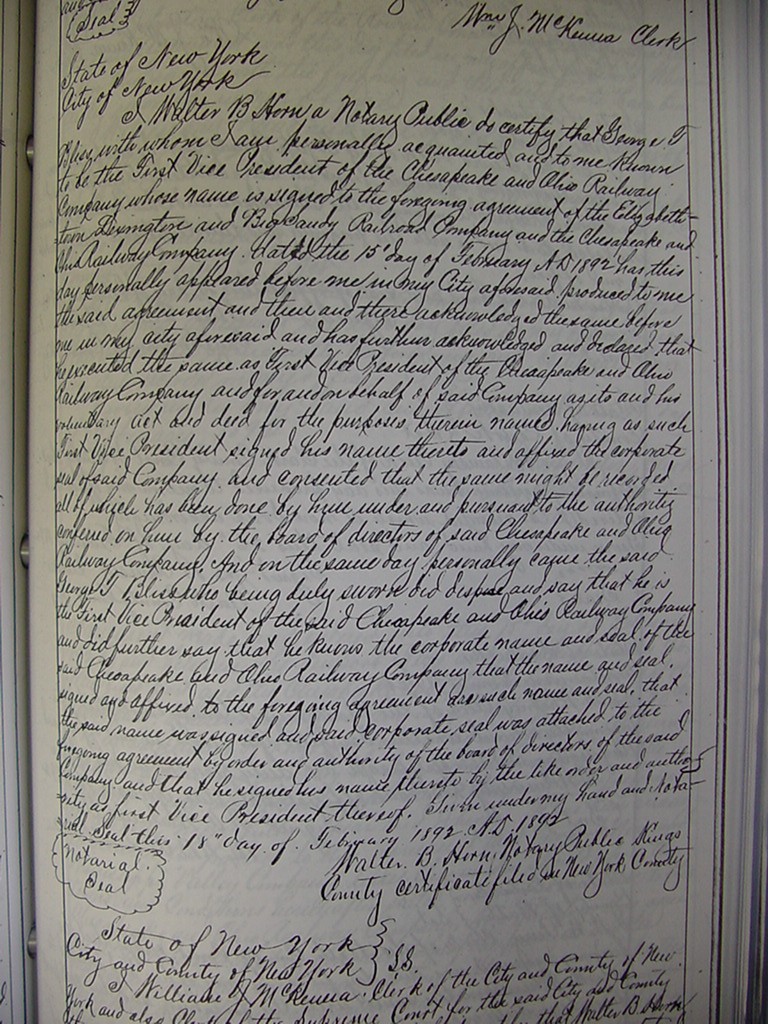 Seal
Wm J. McKenna Clerk
State of New York
City of New York
I Walter B Horn a Notary Public do certify that George T
Bliss with whom I am personally acquainted and to me known
to be the First Vice President of the Chesapeake and Ohio Railway
Company whose name is signed to the foregoing agreement of the Elizabeth-
town Lexington and Big Sandy Railroad Company and the Chesapeake and
Ohio Railway Company. dated the 15" day of February A.D 1892 has this
day personally appeared before me in my City aforesaid produced to me
the said agreement and then and there acknowledged the same before
me in my city aforesaid and has further acknowledged and declared that
he executed the same as First Vice President of the Chesapeake and Ohio
Railway Company and for and on behalf of said Company as its and his
voluntary act and deed for the purposes therein named. having as such
First Vice President signed his name thereto and affixed the corporate
seal of said Company and consented that the same might be recorded
all of which has been done by him under and pursuant to the authority
conferred on him by the board of directors of said Chesapeake and Ohio
Railway Company. And on the same day personally came the said
George T Bliss who being duly sworn did depose and say that he is
the First Vice President of the said Chesapeake and Ohio Railway Company
and did further say that he knows the corporate name and seal of the
said Chesapeake and Ohio Railway Company that the name and seal.
signed and affixed to the foregoing agreement are such name and seal, that
the said name was signed and said corporate seal was attached to the
foregoing agreement by order and authority of the board of directors of the said
Company and that he signed his name thereto by the like order and autho-
rity as first Vice President thereof. Given under my hand and Nota-
rial Seal this 18" day of February 1892 A.D. 1892
Walter. B. Horn, Notary Public Kings
County certificate filed in New York County
Notarial.
Seal
State of New York
City and County of New York } S.S.
I William J McKenna Clerk of the City and County of New
York and also Clerk of the Supreme Court for the said City and County
that Walter B Horn